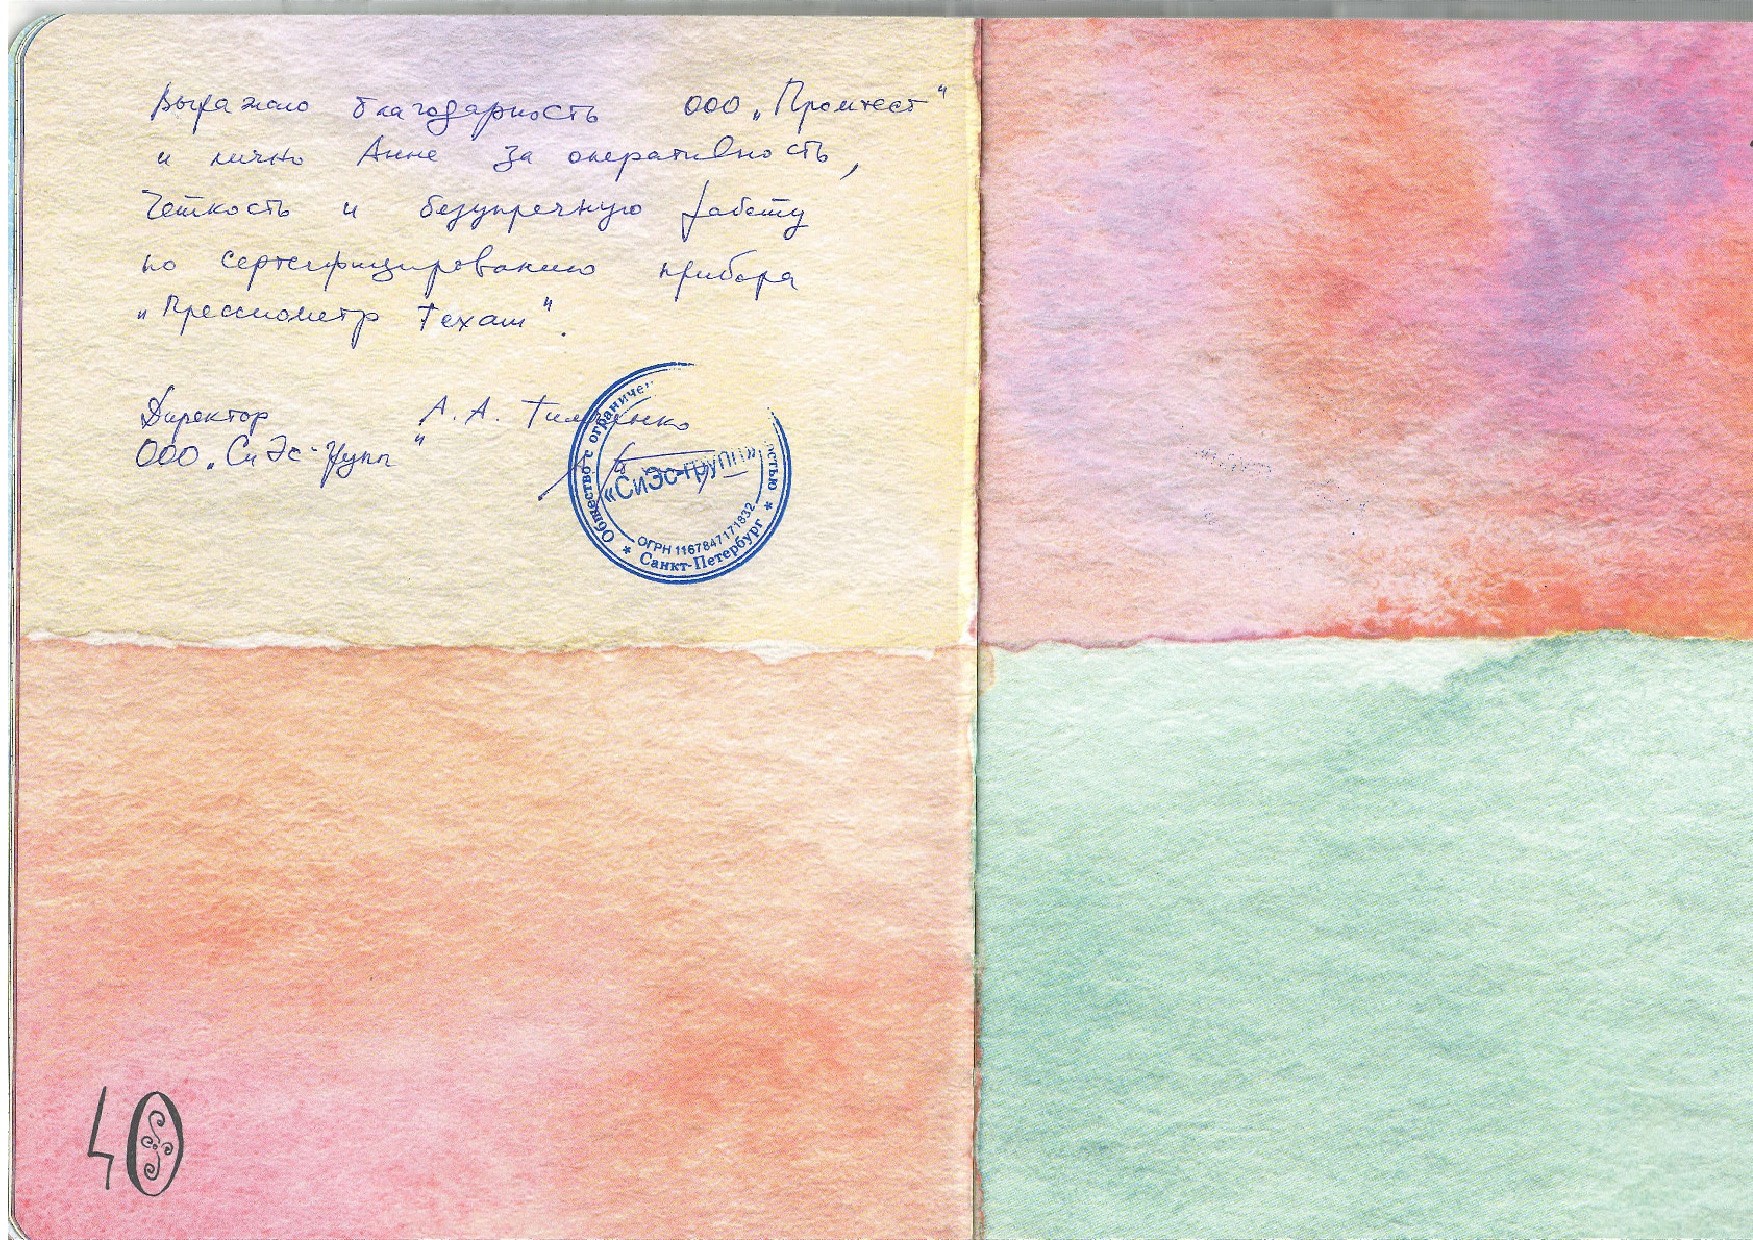 Выражаю благодарность ООО „Промтест"
и лично Анне за оперативность,
четкость и безупречную работу
по сертифицированию прибора
„Прессиометр Техаш".
Директор А. А. Тимченко
ООО „СиЭс-Групп"
Общество с ограниче
остью
«СиЭс-групп»
ОГРН 1167847171832
* Санкт-Петербург *
40